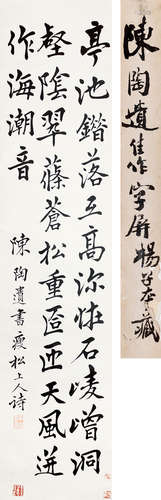 陳陶遺佳作字屏楊子本藏
亭池錯落互高弥怪石崚嶒洞
壑陰翠蓧蒼松重匝匝天風迸
作海潮音
陳陶遺書瘦松上人詩